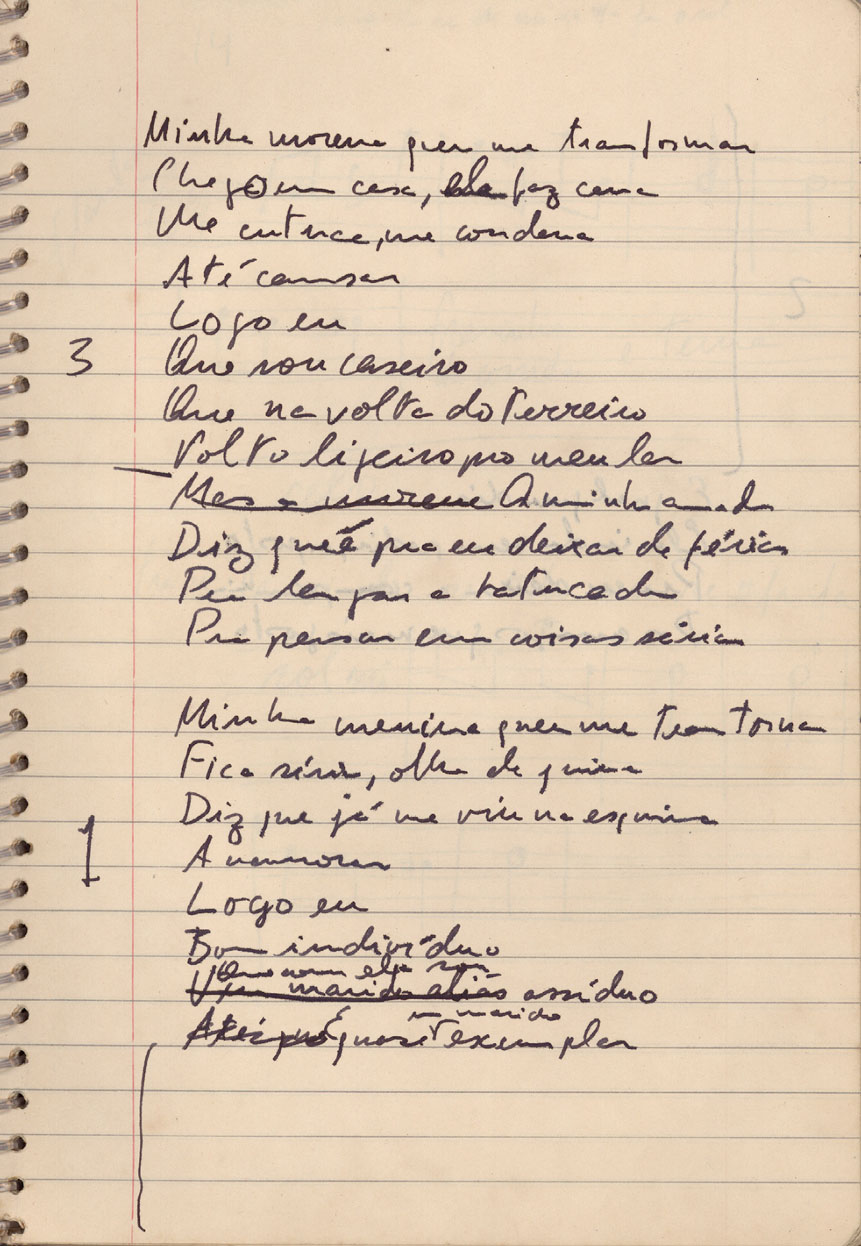 Minha morena quer me transformar
Chego em casa, ela faz cena
Me cutuca, me condena
Até cansar
Logo eu
3
Que sou caseiro
Que na volta do terreiro
Volto ligeiro pro meu lar
Mas a morena A minha amada
Diz que é pra eu deixar de férias
Pra largar a batucada
Pra pensar em coisas sérias
Minha menina quer me transtornar
Fica séria, olha de quina
Diz que já me viu na esquina
A namorar
1
Logo eu
Bom indivíduo
Que com ela sou
Um marido aliás assíduo
um marido
Até que é quase exemplar